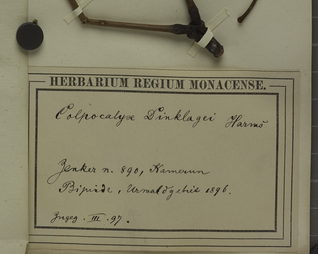 HERBARIUM REGIUM MONACENSE.
Colpocalyx Dinklagei Harms
Zenker n. 890, Kamerun
Bipinde, Urwaldgebiet 1896.
Jngeg. III. 97.